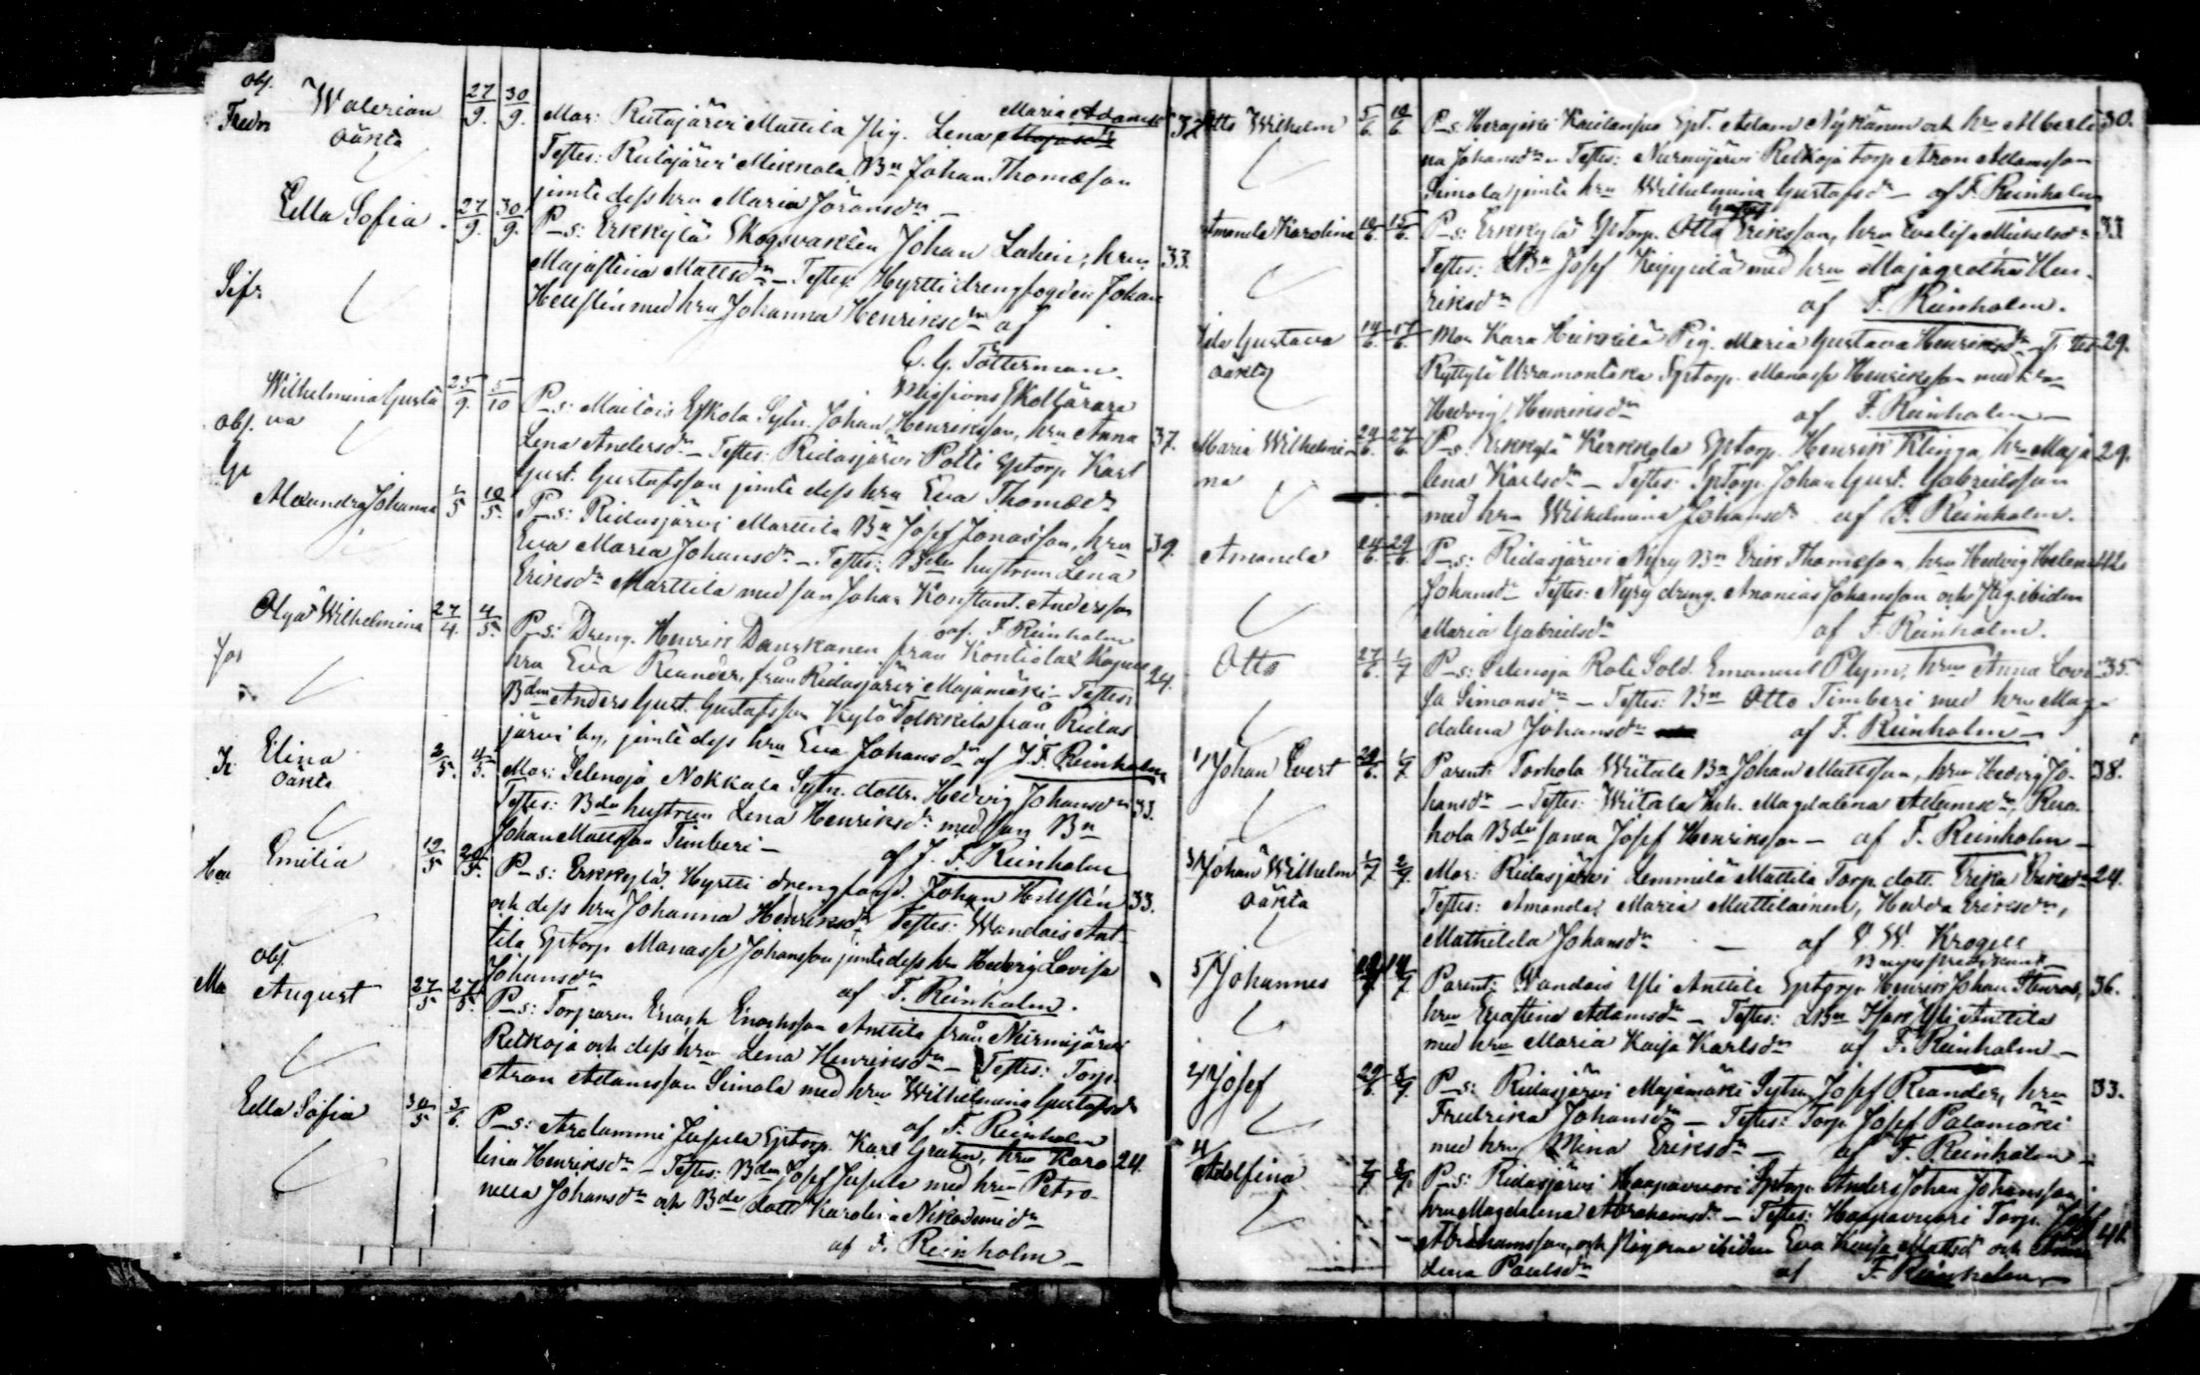 Obs.
Walerian 27/9. 30/9. Mor: Ridasjärvi Mattila Pig. Lena Maria Adamsdr 32
oäkta Testes: Ridasjärvi Mikkola Bn Johan Thomasson
jimte dess hru Maria Jöransdr —
Ella Sofia 27/9. 30/9. P_s: Erkkylä Skogsvakten Johan Lahein, hru 33.
Majastina Mattsdr — Testes: Hyrtti drengfogden Johan
Hellstén med hru Johanna Henriksdr af
C. G. Tötterman
Missions Skollärare
Wilhelmina Gusta 25/9. 5/10 P_s: Maitois Eskola Sytn. Johan Henriksson, hru Anna 37.
Obs. va Lena Andersdr — Testes: Ridasjärvi Polli Sptorp. Karl
Gust. Gustafsson jimte dess hru Eva Thomasdr
Alexandra Johanna 1/5 10/5. P_s: Ridasjärvi Marttila Bn Josef Jonasson, hru 39.
Eva Maria Johansdr — Testes: Bdn hustrun Lena
Eriksdr Marttila med son Johan Konstant. Andersson
af F. Reinholm
Olga Wilhelmina 27/4. 4/5. P_s: Dreng. Henrik Danskanen från Kontiolax Kapell 24.
hru Eva Reander, från Ridasjärvi Majamäki — Testes:
Bdn Anders Gust. Gustafsson Kylä Tolkkila från Ridas
järvi by, jimte dess hru Eva Johansdr af J. F. Reinholm
Elina 2/5. 4/5. Mor: Selenoja Nokkala Sytn. dottr. Hedvig Johansdr 33.
oäkta Testes: Bdn hustrun Lena Henriksdr med son Bn
Johan Mattsson Timberi —
af J. F. Reinholm
Emilia 19/5 20/5. P_s: Erkkylä Hyrtti drengfogd. Johan Hellstén 33.
och dess hru Johanna Henriksdr Testes: Wandais Ant-
tila Sptorp Manasse Johansson jimte dess hru Hedvig Lovisa
Obs. Johansdr
af F. Reinholm.
August 27/5 27/5. P_s: Torparen Enock Enochsson Anttila från Nurmijärvi
Reikoja och dess hru Lena Henriksdr — Testes: Torp.
Aron Adamsson Simola med hru Wilhelmina Gustafsdr
af F. Reinholm
Ella Sofia 30/5 3/6. P_s: Arolammi Jupila Sptorp. Karl Grahn, hru Karo 24.
lina Henriksdr — Testes: Bdn Josef Jupila med hru Petro-
nella Johansdr och Bdr dott. Karolina Nikodemidr
af F. Reinholm —
Otto Wilhelm 5/6 10/6 P_s: Herajoki Kaislasuo Spt. Adam Nykänen och hru Alberti 30.
na Johansdr. Testes: Nurmijärvi Reikoja torp Aron Adamsson
Simola jimte hru Wilhelmina Gustafsdr — af F. Reinholm
Amanda Karolina 10/6. 15/6. P_s: Erkkylä Sptorp. Otto Gustaf Eriksson, hru Evalisa Mickelsdr 33.
Testes: Bn Josef Keippilä med hru Majagretha Hen-
riksdr af F. Reinholm.
Ida Gustava 14/6. 17/6. Mor Kara Heikkilä Pig. Maria Gustava Henriksdr — Testes 29.
oäkta Ryttylä Uramontaka Sptorp. Manasse Henriksson med hru
Hedvig Henriksdr af F. Reinholm —
Maria Wilhelmi 24/6. 27/6. P_s: Erkkylä Kerkkola Sptorp. Henrik Klinga, hru Maja 29.
na lena Karlsdr — Testes: Sptorp. Johan Gust. Gabrielsson
med hru Wilhelmina Johansdr af F. Reinholm.
Amanda 24/6. 29/6. P_s: Ridasjärvi Nyry Bn Erik Thomasson, hru Hedvig Helena 42.
Johansdr Testes: Nyry dreng. Ananias Johansson och Pig. ibidem
Maria Gabrielsdr af F. Reinholm.
Otto 27/6. 1/7 P_s: Selenoja Rote Sold. Emanuel Plym, hru Anna Lovi 35.
sa Simonsdr — Testes: Bn Otto Timberi med hru Mag-
dalena Johansdr af F. Reinholm —
1/ Johan Evert 29/6. 1/7 Parent: Torhola Writala Bn Johan Mattsson, hru Hedvig Jo- 38.
hansdr — Testes: Writala Inh. Magdalena Adamsdr, Ruo-
hola Bdn sonen Josef Henriksson — af F. Reinholm —
3/ Johan Wilhelm 1/7 2/7. Mor: Ridasjärvi Lemmilä Mattila Torp. dott. Erika Eriksdr 24.
oäkta Testes: Amanda, Maria Mattilainen, Hedda Eriksdr,
Mathilda Johansdr — af V. W. Krogell
5/ Johannes Parent: Wandais Yli Anttila Sptorp. Henrik Johan 36.
hru Evastina Adamsdr — Testes: Bn Isak Yli Anttila
med hru Maria Kaisa Karlsdr af F. Reinholm —
2/ Josef 29/6 P_s: Ridasjärvi Majamäki Sytn Josef Reander, hru 33.
Fredrika Johansdr — Testes: Torp. Josef Palomäki
med hru Mina Eriksdr — af F. Reinholm —
4/
Adolfina P_s: Ridasjärvi Haapavuori Sptorp Anders Johan Johansson,
hru Magdalena Abrahamsdr — Testes: Haapavuori Torp. Josef
Abrahamsson, och Pigorna ibidem Eva Kaisa Mattsdr och Anna 41.
Lena Paulsdr af F. Reinholm